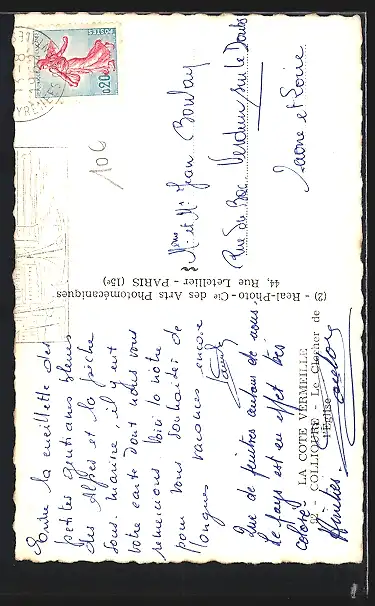 Entre la cueillette des
petites gentianes bleues
des Alpes et la pêche
sous-marine, il y eut
votre carte dont nous vous
remercions. Voici la nôtre
pour vous souhaiter de
longues vacances encore
Que de peintres autour de nous
Le pays est en effet très
coloré
Amitiés
LA COTE VERMEILLE
92 - COLLIOURE - Le Clocher de
l'Eglise
(2) - Real-Photo - Cie des Arts Photomécaniques
44, Rue Letellier - PARIS (15e)
POSTES
0,20
106
Mme et Mr Jean Boulay
Rue du Bac Verdun sur le Doubs
Saone et Loire